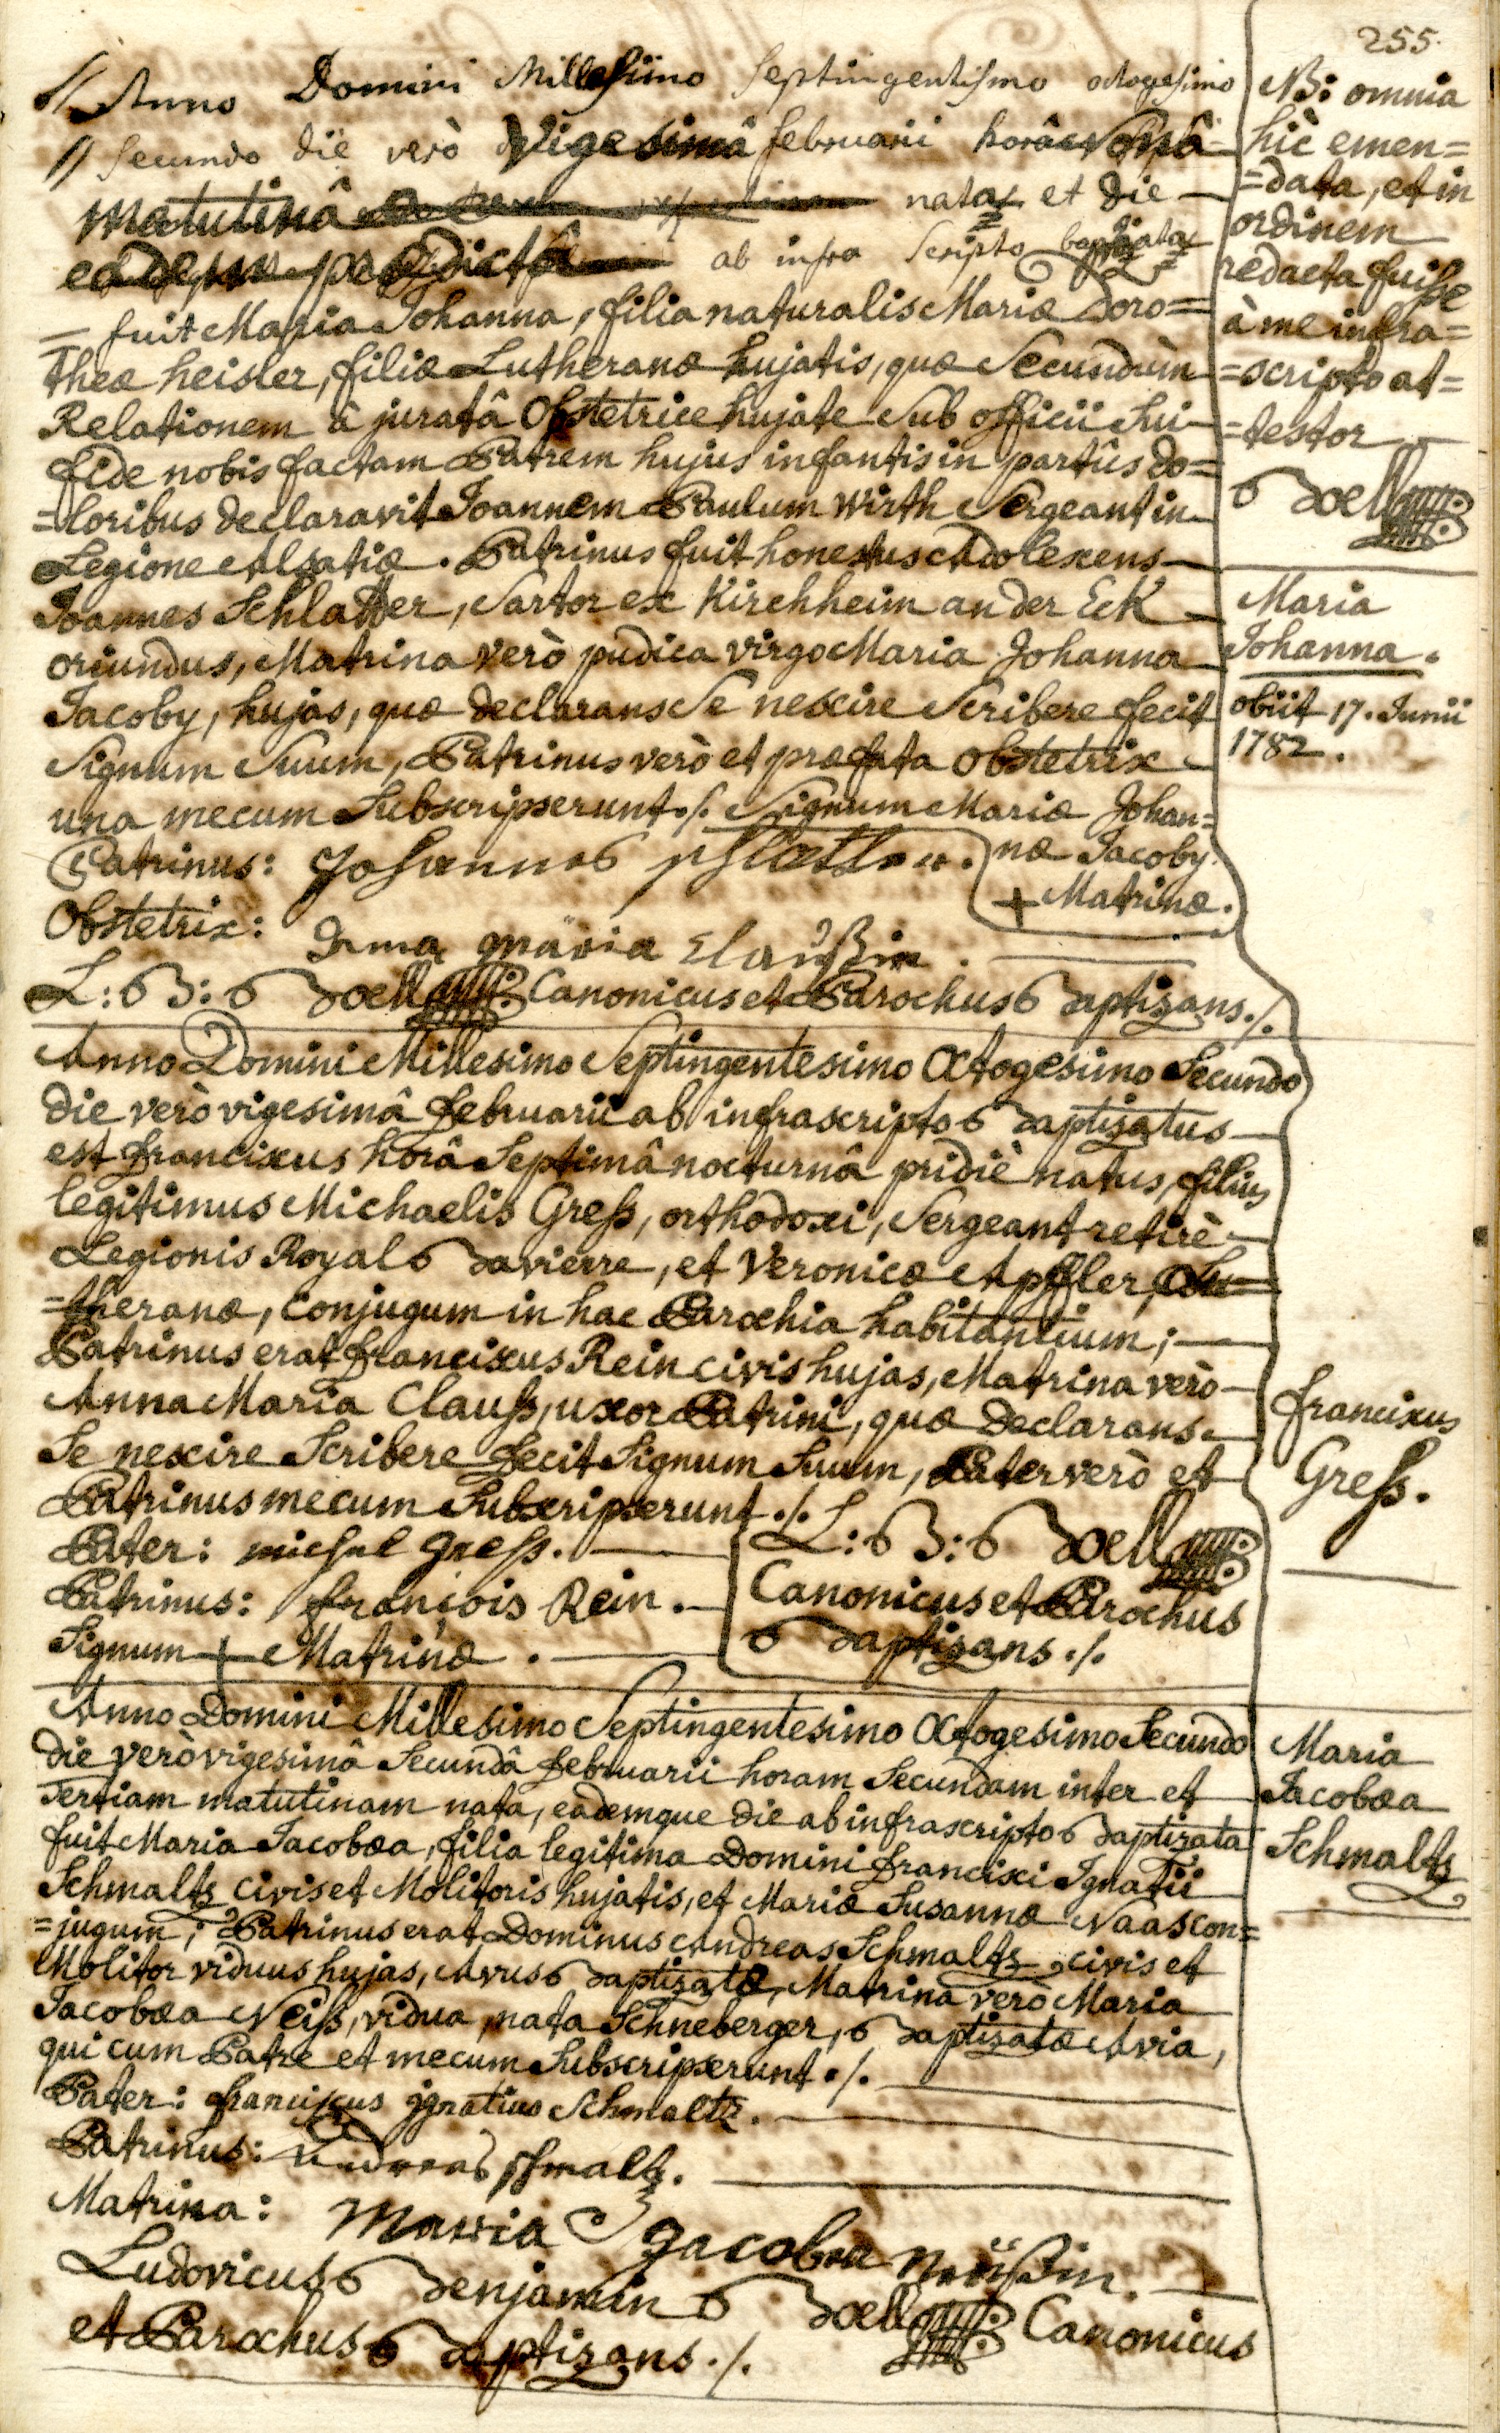 255.
Anno Domini Millesimo Septingentesimo octogesimo
Secundo die verò Vigesimâ februarii horâ Nonâ
matutinâ nata et die
eadem praedictâ ab infra Scripto baptizata
fuit Maria Johanna, filia naturalis Mariæ Doro=
theæ heisler, filiæ Lutheranæ hujatis, quæ Secundùm
Relationem à juratâ Obstetrice hujate Sub officii Sui
fide nobis factam Patrem hujus infantis in partûs do=
=loribus declaravit Joannem Paulum Wirth Sergeant in
Legione Alsatiæ. Patrinus fuit honestus Adolescens
Joannes Schlatter, Sartor ex Kirchheim an der Eck
oriundus, Matrina verò pudica virgo Maria Johanna
Jacoby, hujas, quæ declarans Se nescire Scribere fecit
Signum Suum, Patrinus verò et præfata Obstetrix
una mecum Subscripserunt ./. Signum Mariæ Johan=
næ Jacoby
+ Matrinæ.
Patrinus: Johannes schlatter.
Obstetrix: Anna maria Claußin.
L: B: Boell Canonicus et Parochus Baptizans ./.
NB: omnia
hìc emen=
=data, et in
ordinem
redacta fuisse
à me infra=
=scripto at=
=testor
Boell
Maria
Johanna.
obiit 17. Junii
1782.
Anno Domini Millesimo Septingentesimo Octogesimo Secundo
die verò vigesimâ februarii ab infrascripto Baptizatus
est franciscus horâ Septimâ nocturnâ pridiè natus, filius
legitimus Michaelis Greß, orthodoxi, Sergeant retirè
Legionis Royal Bavierre, et Veronicæ Apffler, Lu=
=theranæ, conjugum in hac Parochia habitantium;
Patrinus erat franciscus Rein civis hujas, Matrina verò
Anna Maria Clauß, uxor Patrini, quæ declarans
Se nescire Scribere fecit Signum Suum, Pater verò et
Patrinus mecum Subscripserunt ./.
Pater: michel Greß.
Patrinus: françois Rein.
Signum + Matrinæ.
L: B: Boell
Canonicus et Parochus
Baptizans ./.
franciscus
Greß.
Anno Domini Millesimo Septingentesimo Octogesimo Secundo
die verò vigesimâ Secundâ februarii horam Secundam inter et
Tertiam matutinam nata, eademque die ab infrascripto Baptizata
fuit Maria Jacobæa, filia legitima Domini francisci Ignatii
Schmaltz civis et Molitoris hujatis, et Mariæ Susannæ Naas con=
=jugum; Patrinus erat Dominus Andreas Schmaltz, civis et
Molitor viduus hujas, Avus Baptizatæ, Matrina verò Maria
Jacobæa Neiß, vidua, nata Schneberger, Baptizatæ Avia,
qui cum Patre et mecum Subscripserunt ./.
Pater: franciscus ignatius Schmaltz.
Patrinus: Andreas schmaltz.
Matrina: Maria Jacobea neißin.
Ludovicus Benjamin Boell Canonicus
et Parochus Baptizans ./.
Maria
Jacobæa
Schmaltz